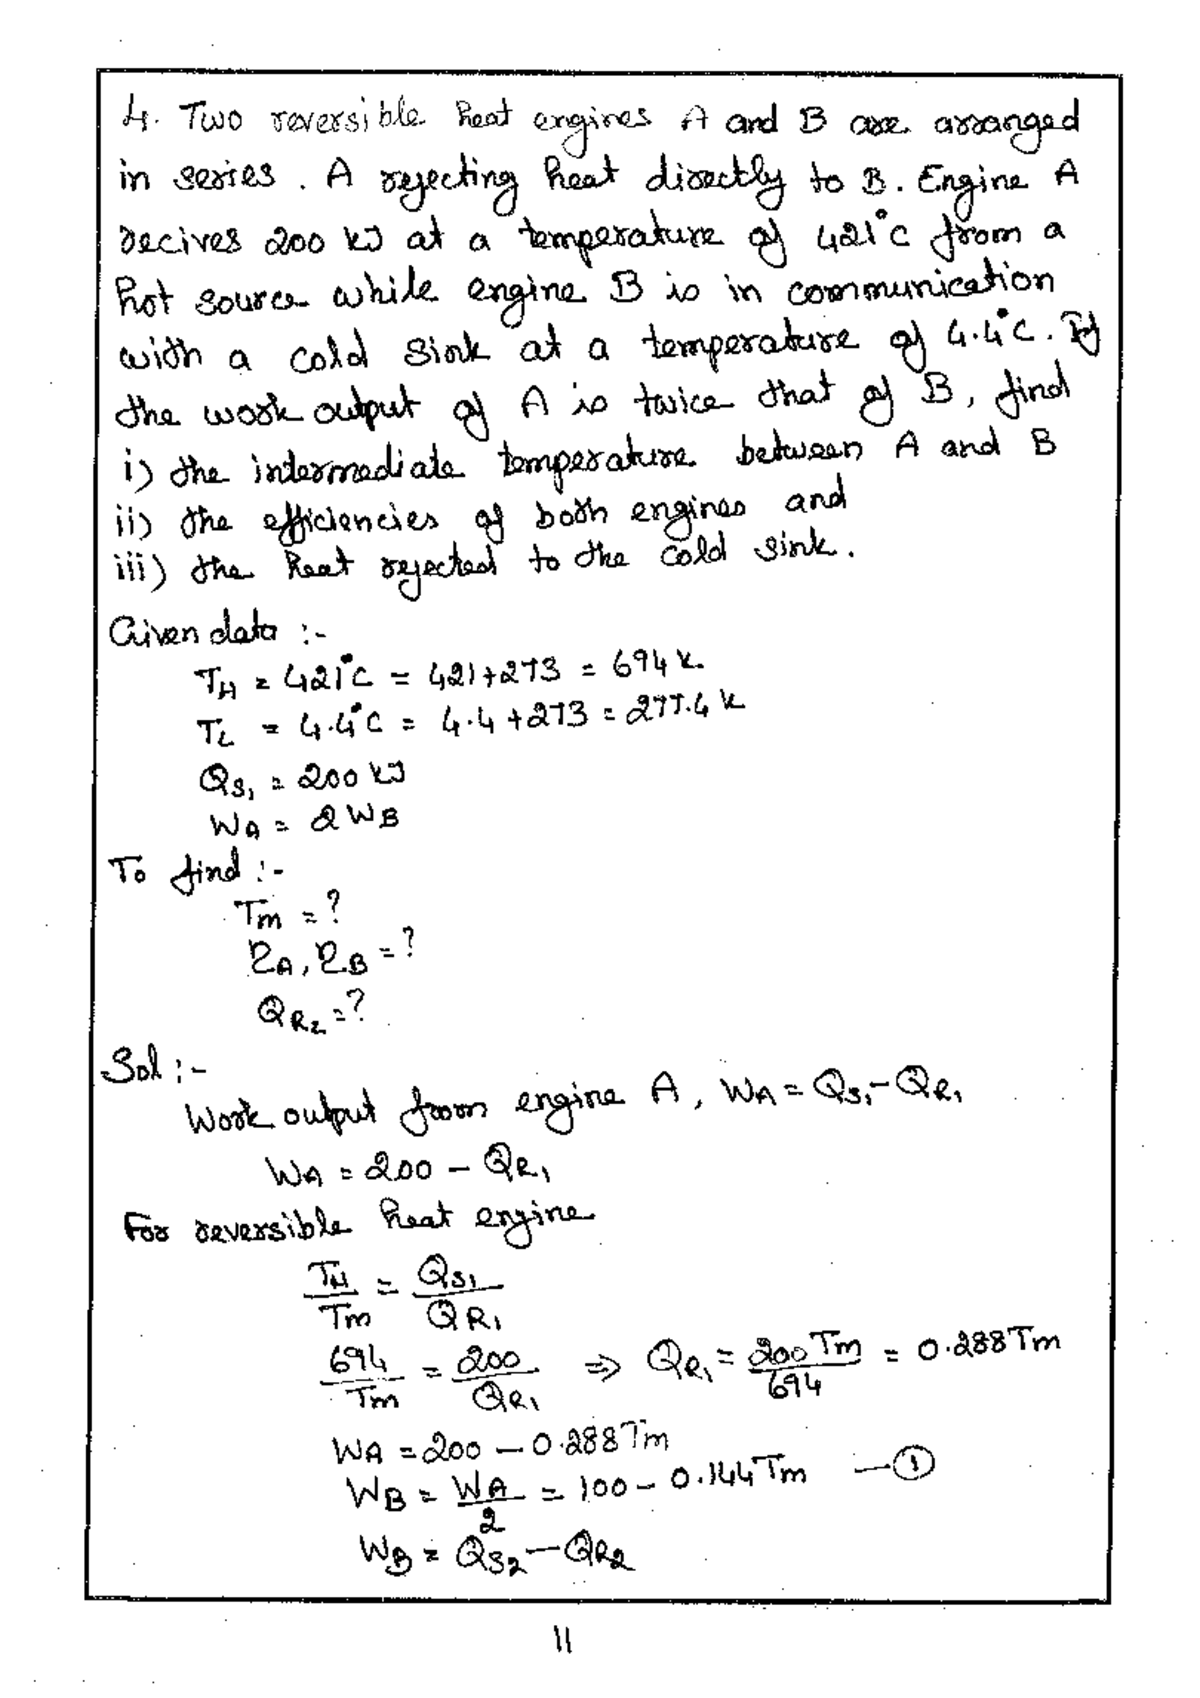 4. Two reversible heat engines A and B are arranged
in series. A rejecting heat directly to B. Engine A
recives 200 kJ at a temperature of 421°C from a
hot source while engine B is in communication
with a cold sink at a temperature of 4.4°C. If
the work output of A is twice that of B, find
i) the intermediate temperature between A and B
ii) the efficiencies of both engines and
iii) the heat rejected to the cold sink.
Given data :-
T_H = 421°C = 421+273 = 694 K.
T_L = 4.4°C = 4.4+273 = 277.4 K
Q_S1 = 200 kJ
W_A = 2 W_B
To find :-
T_m = ?
η_A, η_B = ?
Q_R2 = ?
Sol :-
Work output from engine A, W_A = Q_S1 - Q_R1
W_A = 200 - Q_R1
For reversible heat engine
T_H/T_m = Q_S1/Q_R1
694/T_m = 200/Q_R1 ⇒ Q_R1 = 200 T_m/694 = 0.288 T_m
W_A = 200 - 0.288 T_m
W_B = W_A/2 = 100 - 0.144 T_m —①
W_B = Q_S2 - Q_R2
11